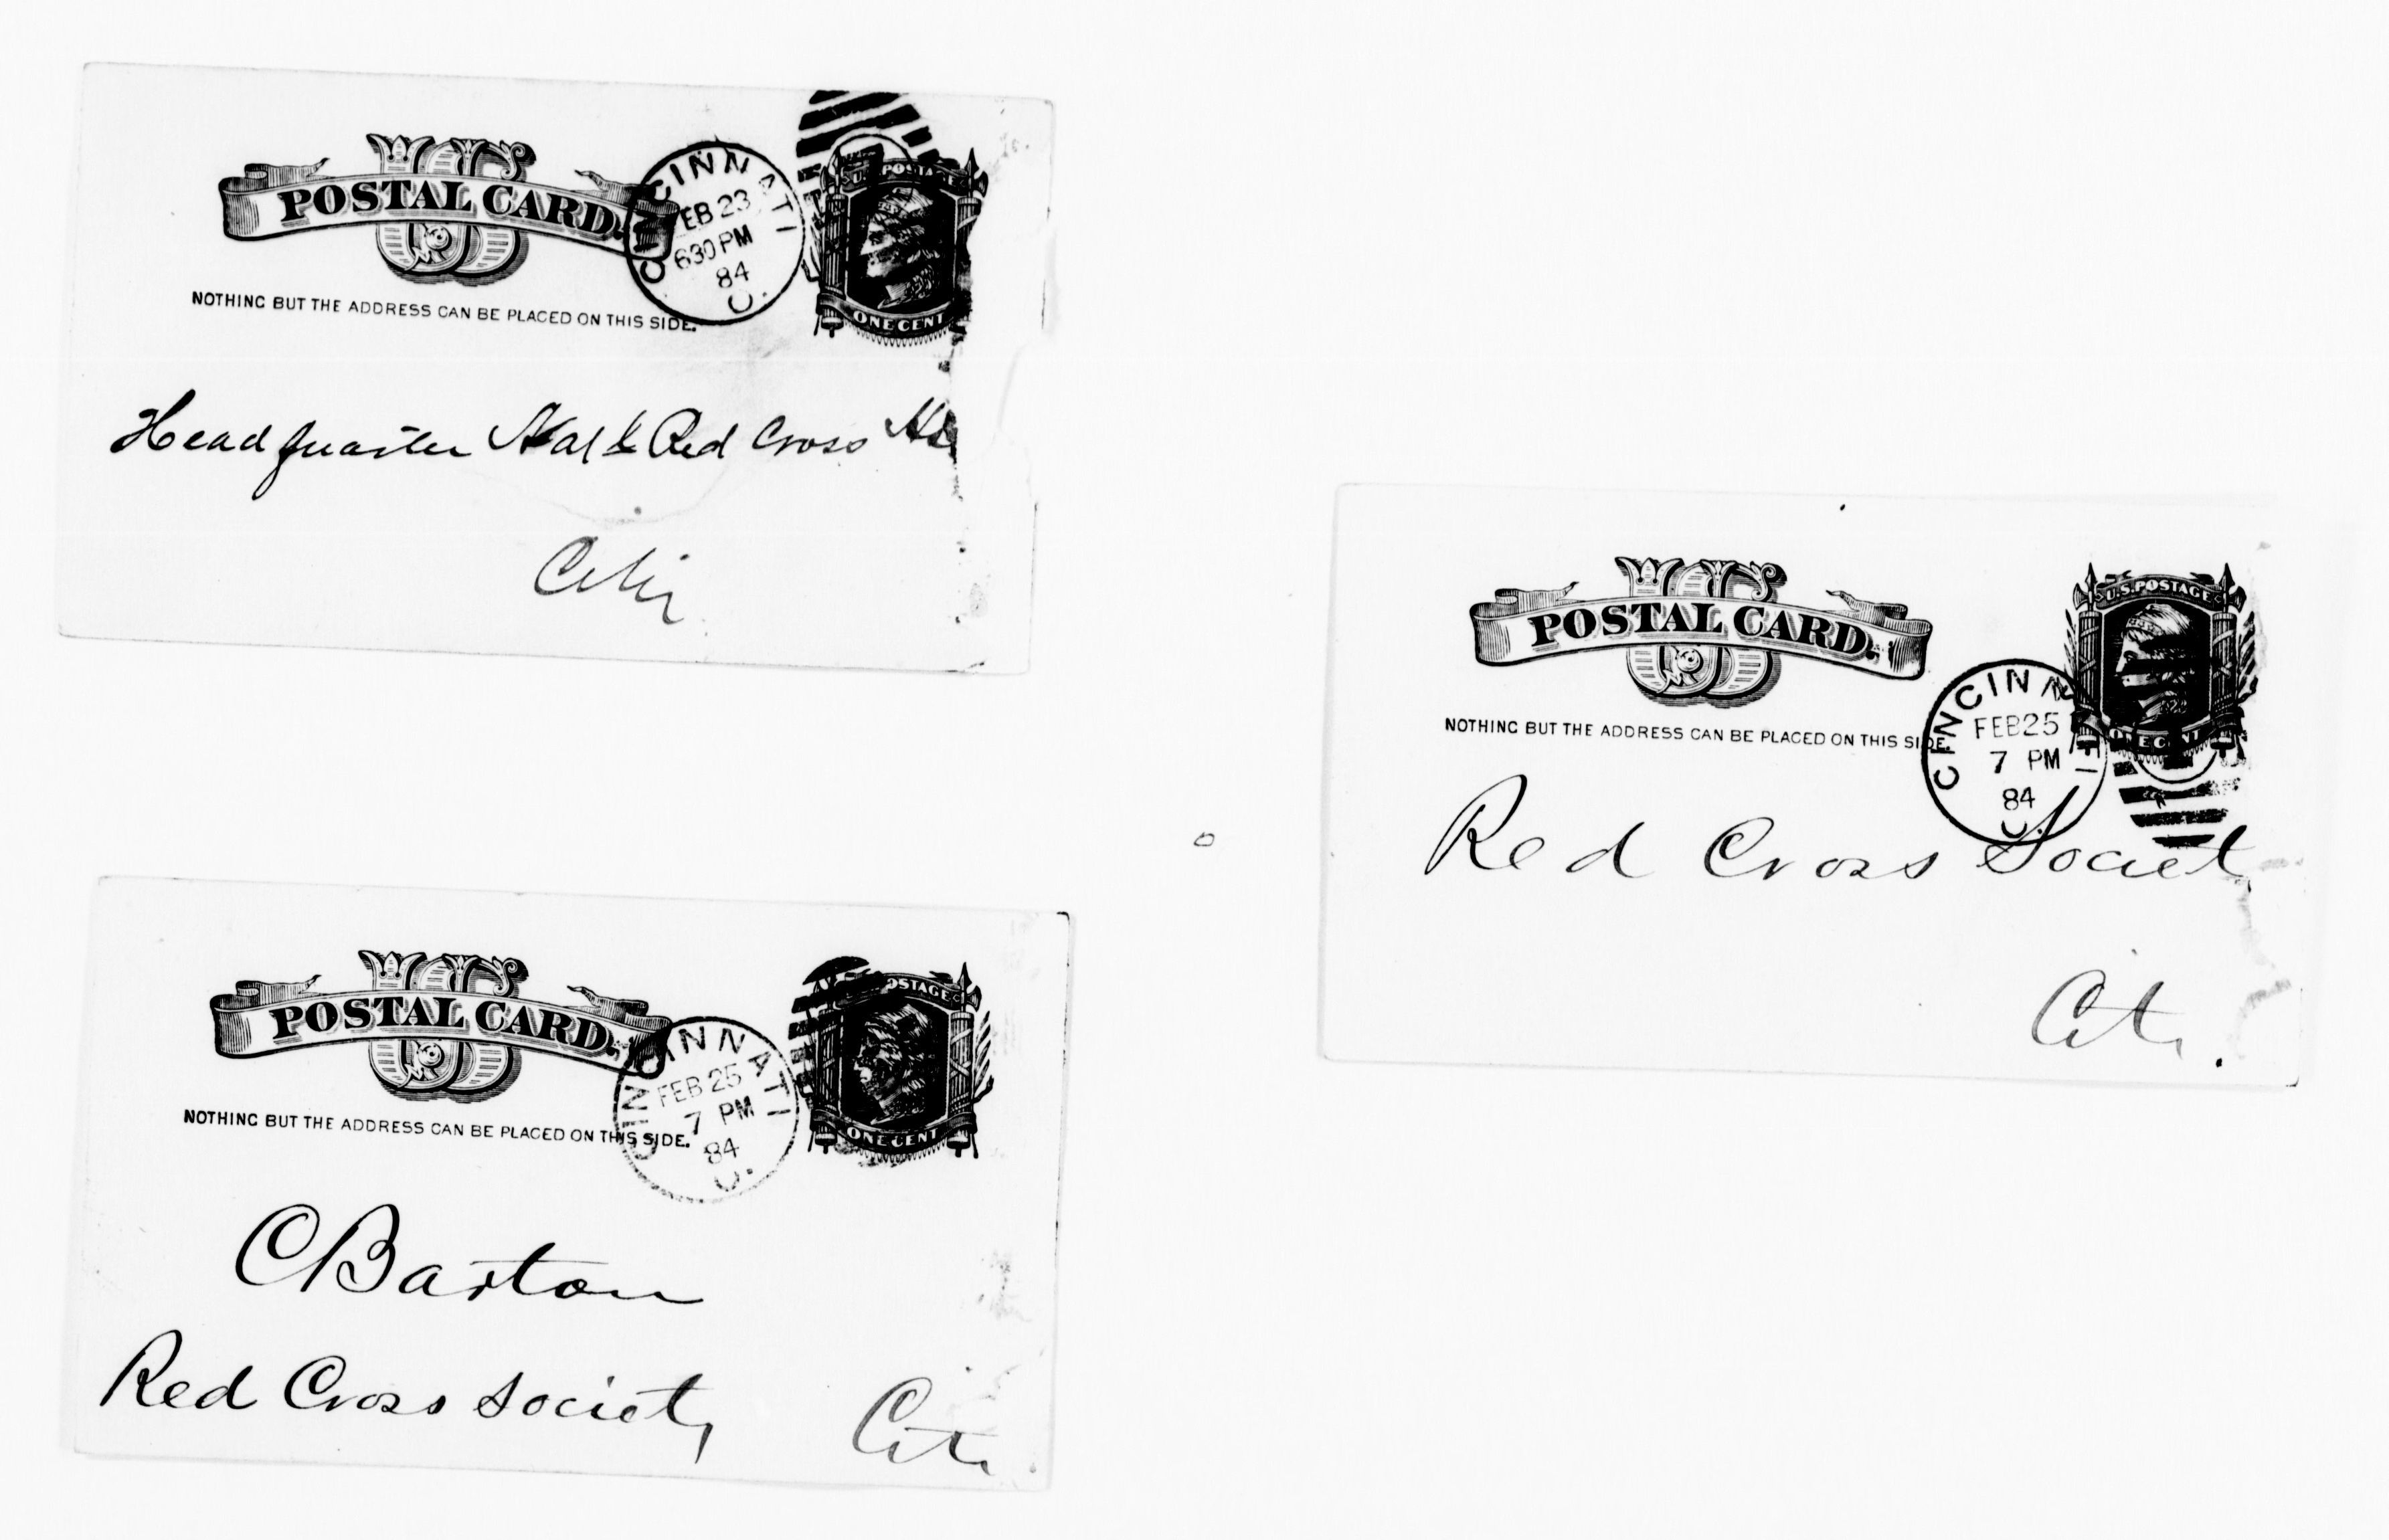 US
POSTAL CARD.
NOTHING BUT THE ADDRESS CAN BE PLACED ON THIS SIDE.
CINCINNATI O.
FEB 23
630 PM
84
U.S. POSTAGE
ONE CENT
Head quarter Nat l Red Cross
City
US
POSTAL CARD.
NOTHING BUT THE ADDRESS CAN BE PLACED ON THIS SIDE.
CINCINNATI O.
FEB 25
7 PM
84
POSTAGE
ONE CENT
C Barton
Red Cross Society
City
US
POSTAL CARD.
NOTHING BUT THE ADDRESS CAN BE PLACED ON THIS SIDE
U.S. POSTAGE
ONE CENT
CINCINNATI O.
FEB 25
7 PM
84
Red Cross Societ
City